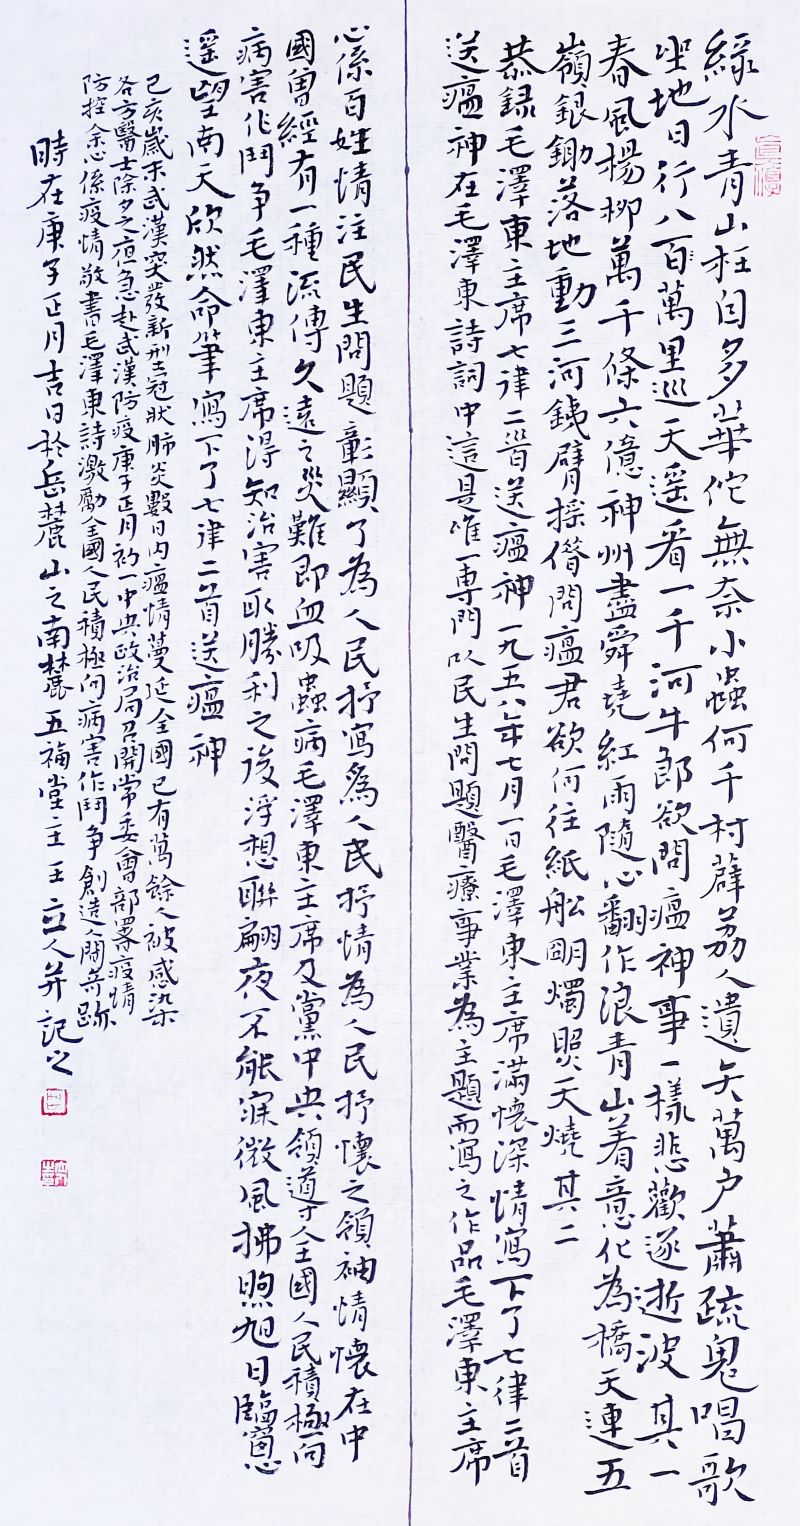 綠水青山枉自多華佗無奈小蟲何千村薜荔人遺矢萬户蕭疏鬼唱歌
坐地日行八百萬里巡天遥看一千河牛郎欲問瘟神事一樣悲歡逐逝波其一
春風楊柳萬千條六億神州盡舜堯紅雨隨心翻作浪青山着意化為橋天連五
嶺銀鋤落地動三河鐵臂摇借問瘟君欲何往紙船明燭照天燒其二
恭録毛澤東主席七律二首送瘟神一九五八年七月一日毛澤東主席滿懷深情寫下了七律二首
送瘟神在毛澤東詩詞中這是唯一專門以民生問題醫療事業為主題而寫之作品毛澤東主席
心係百姓情注民生問題彰顯了為人民抒寫為人民抒情為人民抒懷之領袖情懷在中
國曾經有一種流傳久遠之災難即血吸蟲病毛澤東主席及黨中央領導了全國人民積極向
病害作鬥争毛澤東主席得知治害取勝利之後浮想聯翩夜不能寐微風拂煦旭日臨窗
遥望南天欣然命筆寫下了七律二首送瘟神
己亥歲末武漢突發新型冠狀肺炎數日内瘟情蔓延全國已有萬餘人被感染
各方醫士除夕之夜急赴武漢防疫庚子正月初一中央政治局召開常委會部署疫情
防控余心係疫情敬書毛澤東詩激勵全國人民積極向病害作鬥争創造人間奇跡
時在庚子正月吉日於岳麓山之南麓五福堂主王立人并記之